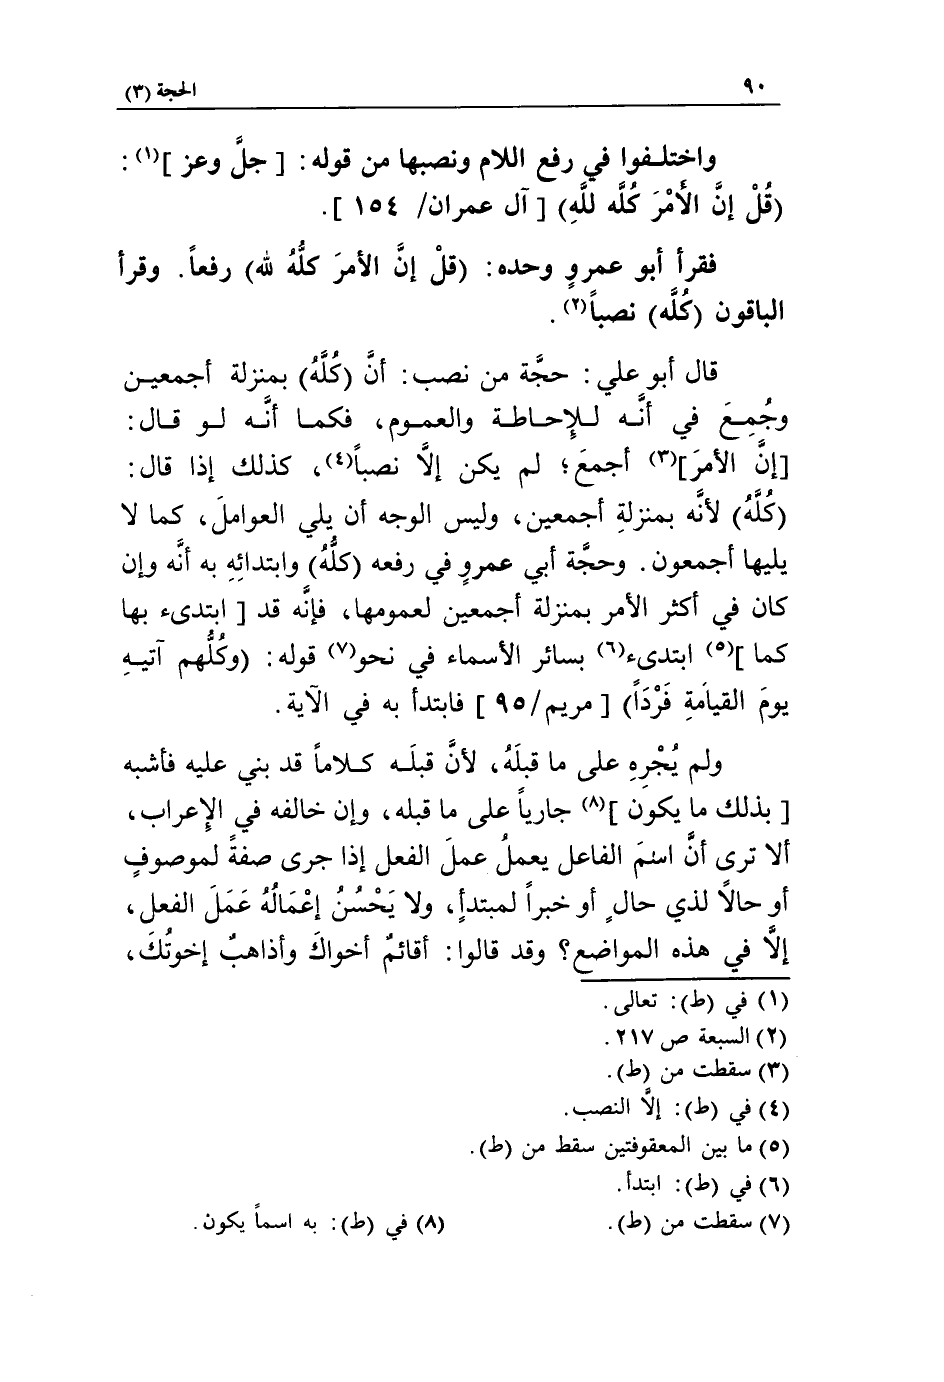 ٩٠ الحجة (٣)
واختلفوا في رفع اللام ونصبها من قوله: [ جلَّ وعز ](١) :
(قُلْ إنَّ الأَمْرَ كُلَّه للَّهِ) [ آل عمران/ ١٥٤ ].
فقرأ أبو عمروٍ وحده: (قلْ إنَّ الأمرَ كلُّهُ لله) رفعاً. وقرأ
الباقون (كُلَّه) نصباً(٢) .
قال أبو علي: حجَّة من نصب: أنَّ (كُلَّهُ) بمنزلة أجمعين
وجُمِعَ في أنَّه للإحاطة والعموم، فكما أنَّه لو قال:
[إنَّ الأمرَ](٣) أجمعَ؛ لم يكن إلَّا نصباً(٤)، كذلك إذا قال:
(كُلَّهُ) لأنَّه بمنزلةِ أجمعين، وليس الوجه أن يلي العواملَ، كما لا
يليها أجمعون. وحجَّة أبي عمروٍ في رفعه (كلُّهُ) وابتدائِهِ به أنَّه وإن
كان في أكثر الأمر بمنزلة أجمعين لعمومها، فإنَّه قد [ ابتدىء بها
كما ](٥) ابتدىء(٦) بسائر الأسماء في نحو(٧) قوله: (وكُلُّهم آتيهِ
يومَ القيامَةِ فَرْدَاً) [ مريم/٩٥ ] فابتدأ به في الآية.
ولم يُجْرِهِ على ما قبلَهُ، لأنَّ قبلَه كلاماً قد بني عليه فأشبه
[ بذلك ما يكون ](٨) جارياً على ما قبله، وإن خالفه في الإعراب،
ألا ترى أنَّ اسمَ الفاعل يعملُ عملَ الفعل إذا جرى صفةً لموصوفٍ
أو حالًا لذي حالٍ أو خبراً لمبتدأٍ، ولا يَحْسُنُ إعْمالُهُ عَمَلَ الفعل،
إلَّا في هذه المواضع؟ وقد قالوا: أقائمٌ أخواكَ وأذاهبٌ إخوتُكَ،
(١) في (ط): تعالى.
(٢) السبعة ص ٢١٧ .
(٣) سقطت من (ط).
(٤) في (ط): إلَّا النصب.
(٥) ما بين المعقوفتين سقط من (ط).
(٦) في (ط): ابتدأ.
(٧) سقطت من (ط). (٨) في (ط): به اسماً يكون.